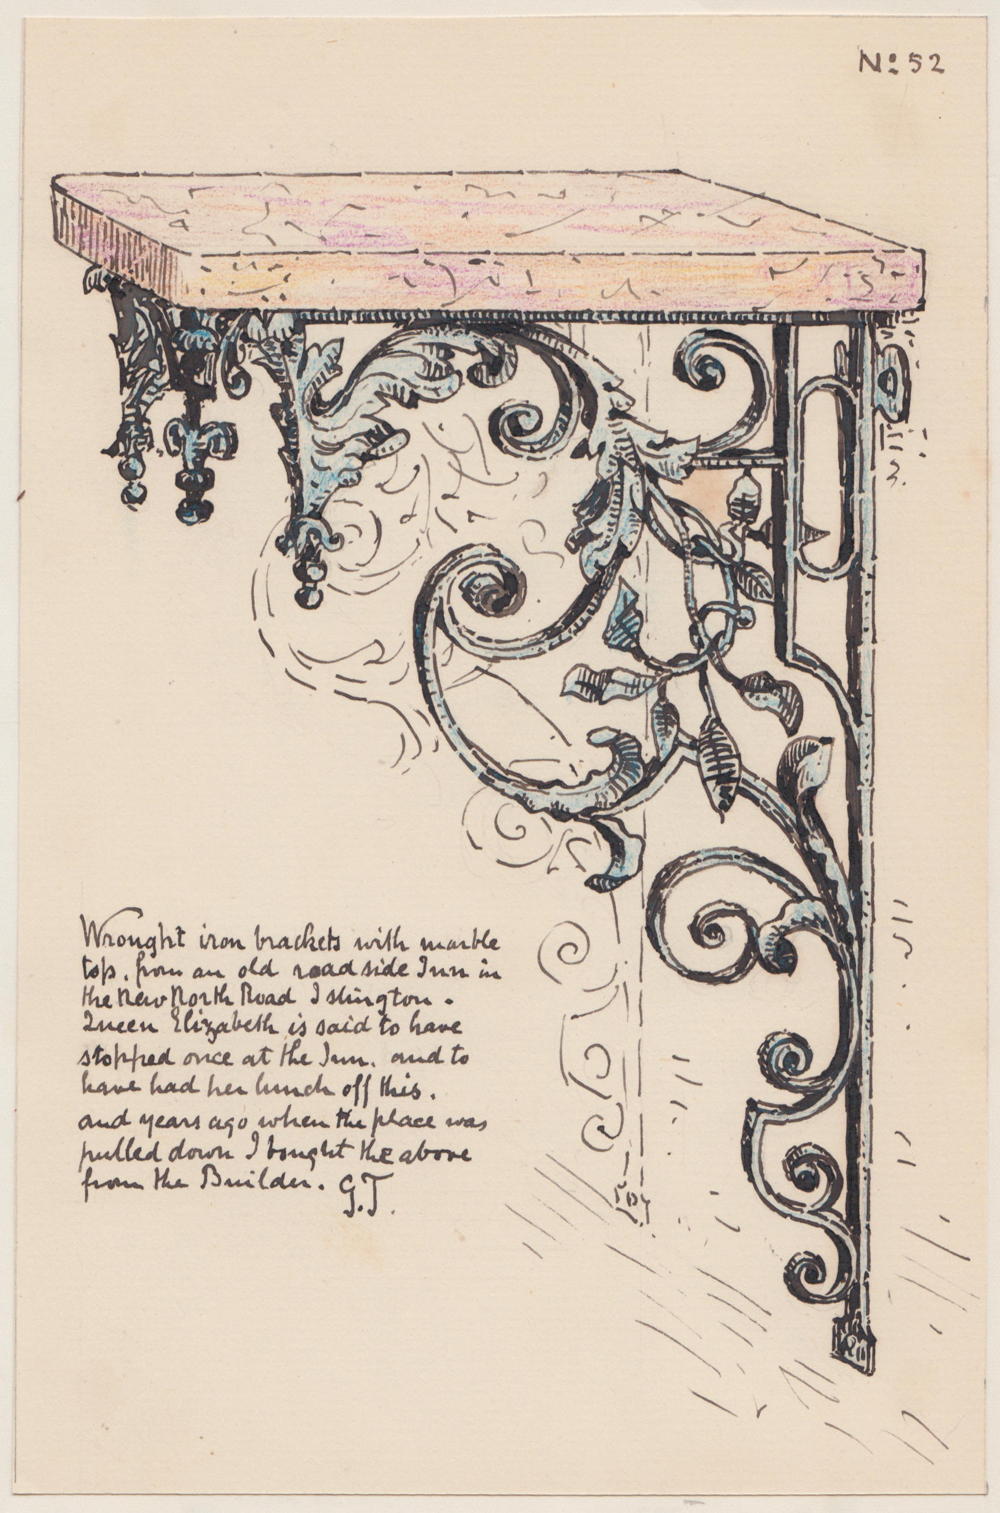 No 52
Wrought iron brackets with marble
top. from an old road side Inn in
the New North Road Islington.
Queen Elizabeth is said to have
stopped once at the Inn. and to
have had her lunch off this.
and years ago when the place was
pulled down I bought the above
from the Builder. G.T.